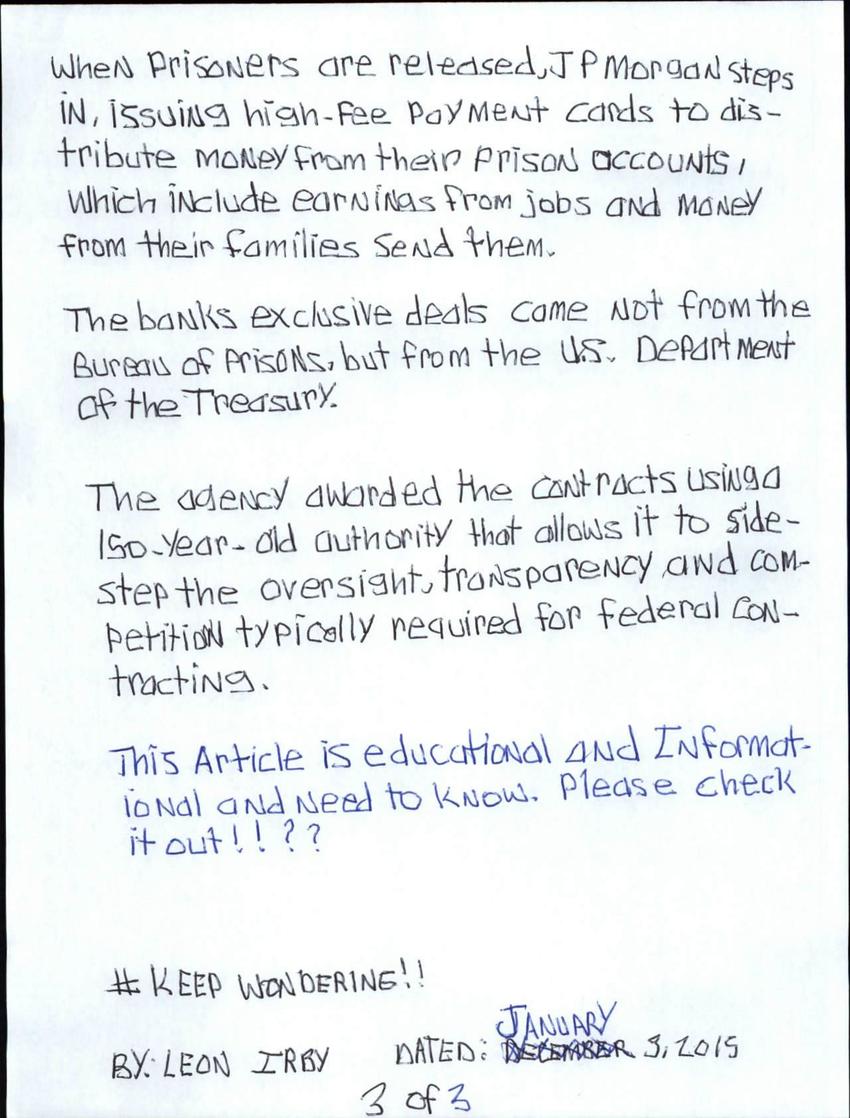 When Prisoners are released, JP Morgan steps
in, issuing high-fee payment cards to dis-
tribute money from their prison accounts,
which include earnings from jobs and money
from their families send them.
The banks exclusive deals come not from the
Bureau of Prisons, but from the U.S. Department
of the Treasury.
The agency awarded the contracts using a
150-year-old authority that allows it to side-
step the oversight, transparency and com-
petition typically required for federal con-
tracting.
This Article is educational and Informat-
ional and need to know. Please check
it out!!??
# KEEP WONDERING!!
JANUARY
BY: LEON IRBY DATED: DECEMBER 3, 2015
3 of 3